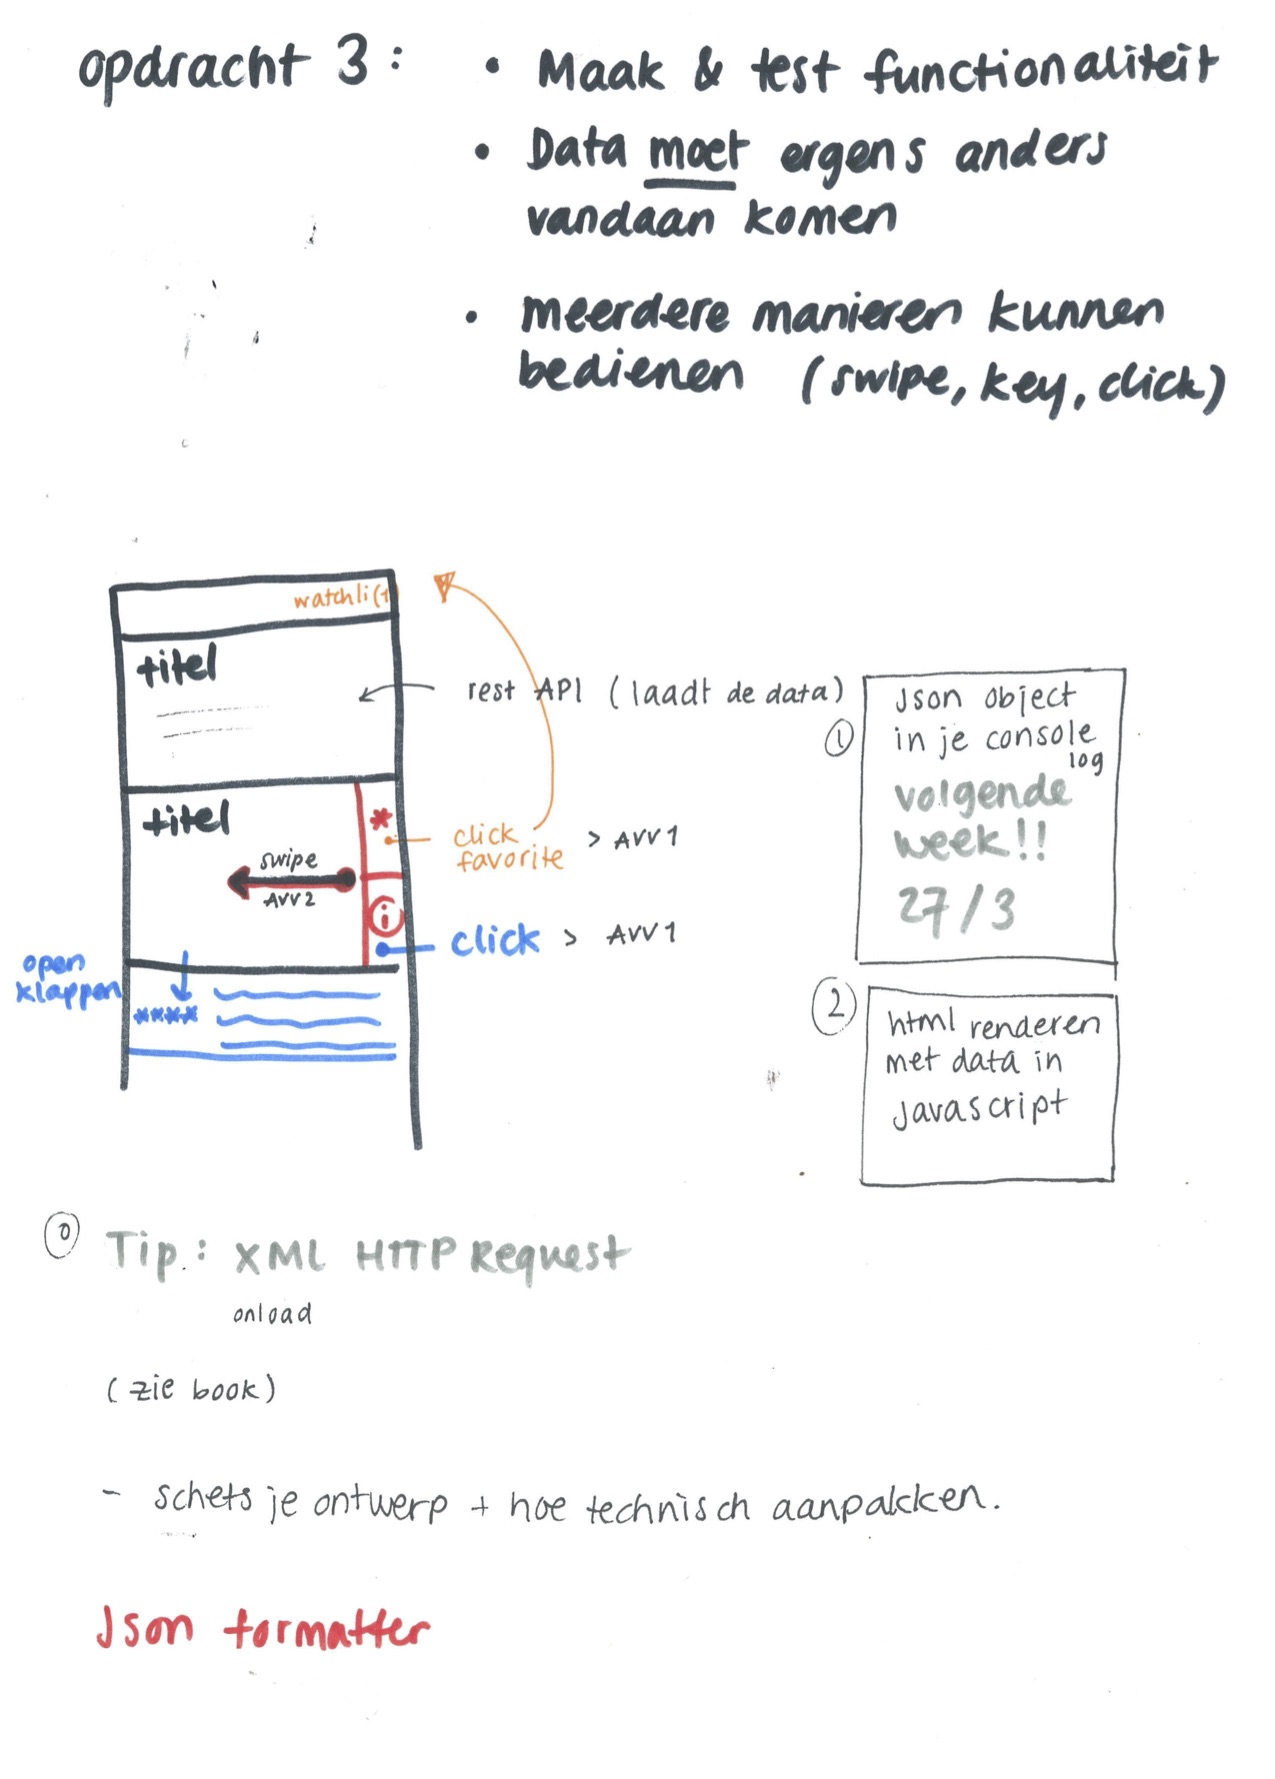 opdracht 3:
• Maak & test functionaliteit
• Data moet ergens anders
vandaan komen
• meerdere manieren kunnen
bedienen (swipe, key, click)
watchlist
titel
rest API (laadt de data)
titel
*
swipe
AVV 2
i
click
favorite
> AVV 1
click > AVV 1
open
klappen
****
1
Json object
in je console
log
volgende
week!!
27/3
2
html renderen
met data in
Javascript
0
Tip: XML HTTP Request
onload
(zie book)
- schets je ontwerp + hoe technisch aanpakken.
Json formatter